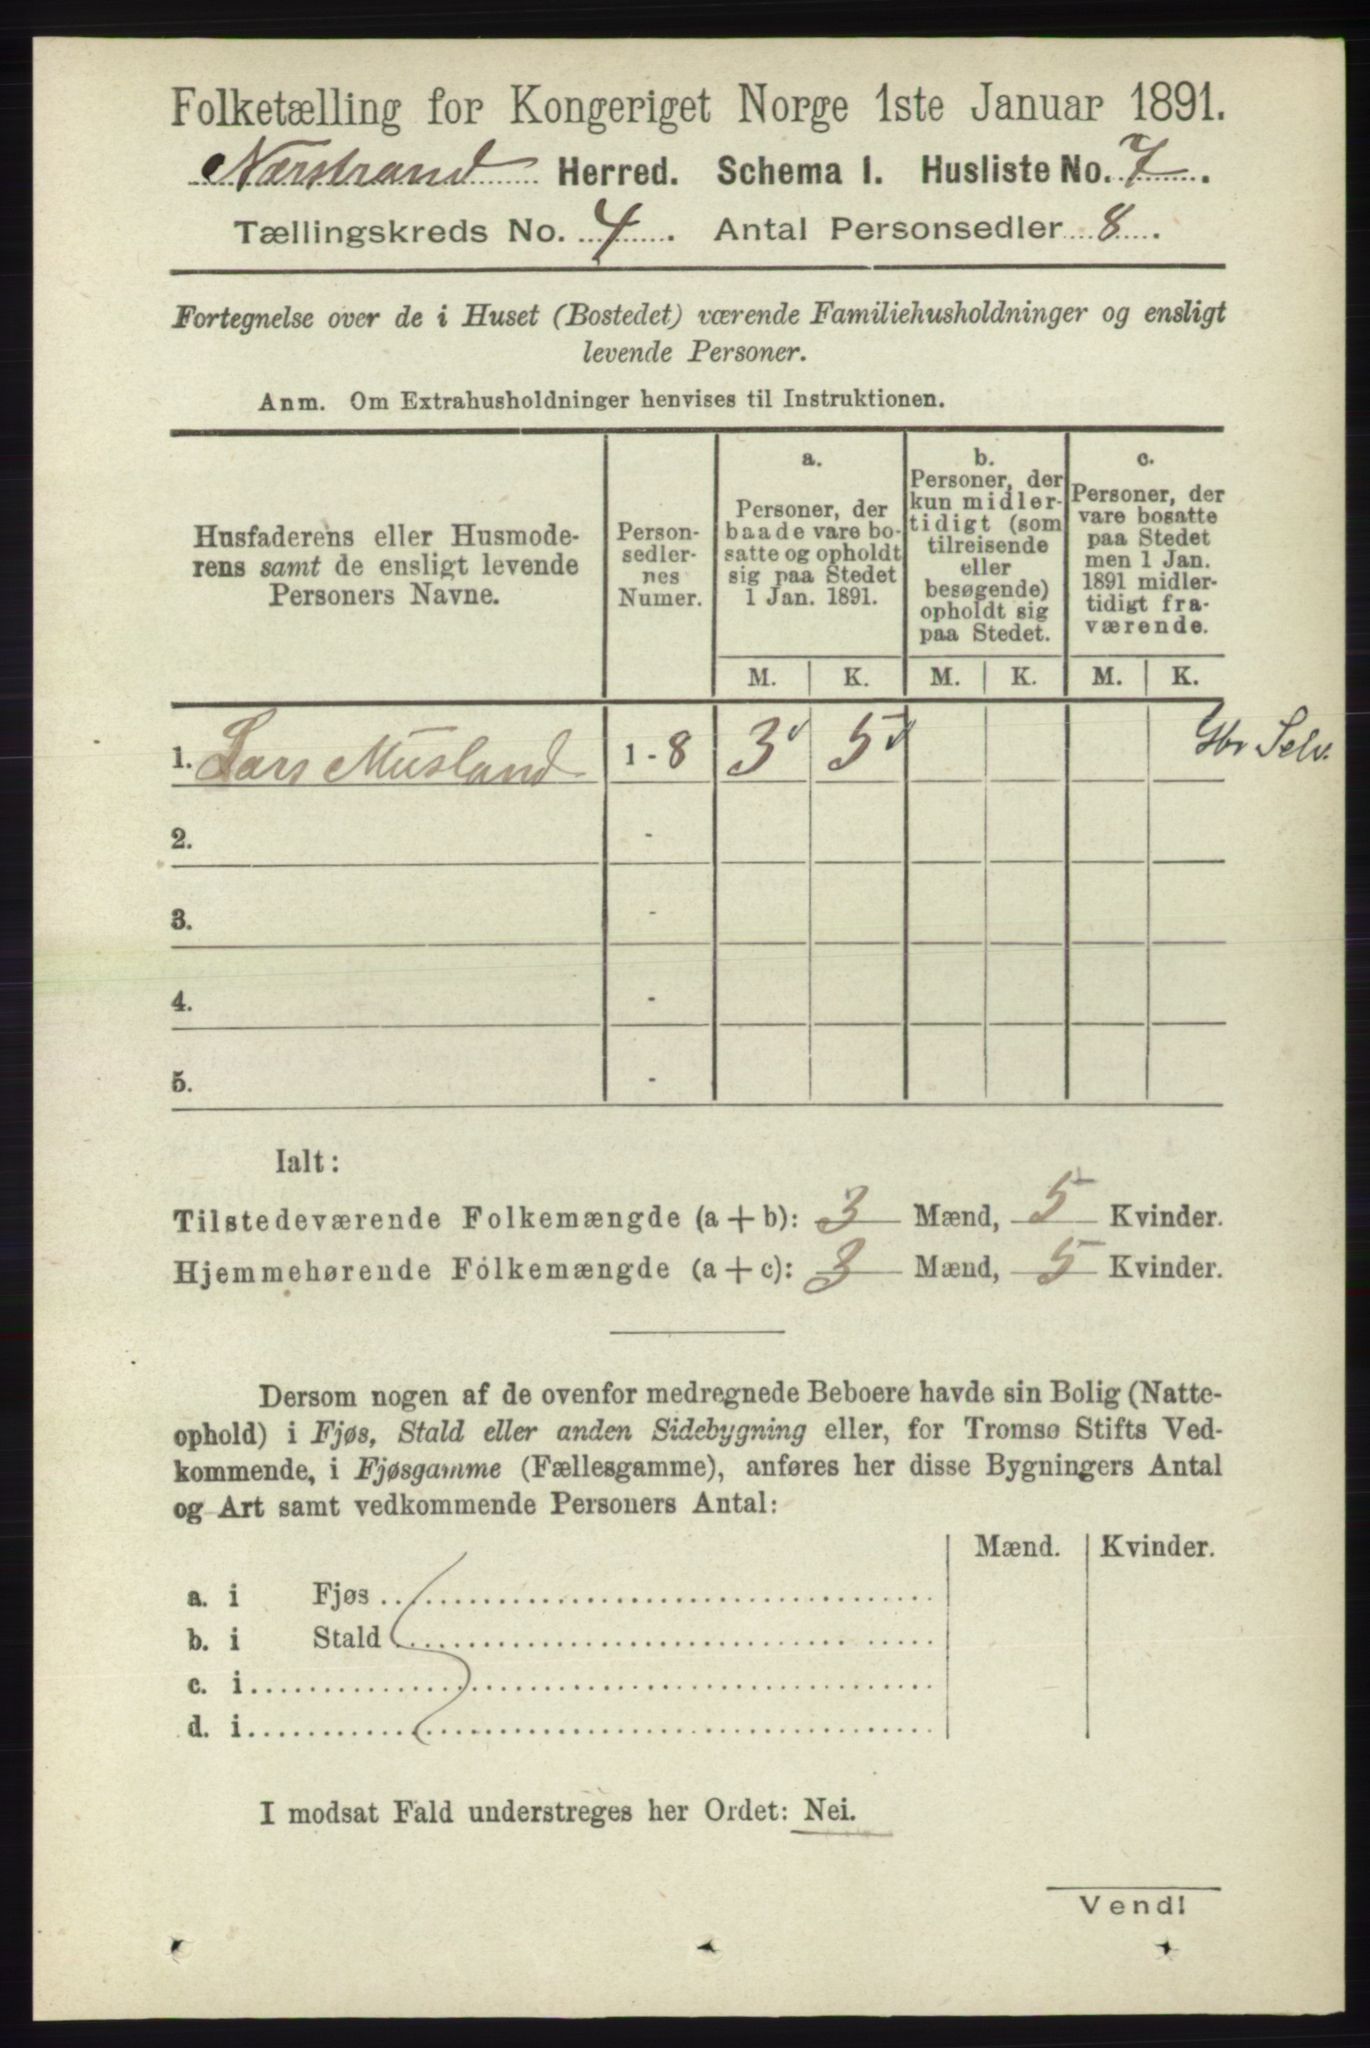 Folketælling for Kongeriget Norge 1ste Januar 1891.
Nærstrand Herred. Schema I. Husliste No. 7.
Tællingskreds No. 4. Antal Personsedler 8.
Fortegnelse over de i Huset (Bostedet) værende Familiehusholdninger og ensligt
levende Personer.
Anm. Om Extrahusholdninger henvises til Instruktionen.
Husfaderens eller Husmode-
rens samt de ensligt levende
Personers Navne.
Person-
sedler-
nes
Numer.
a.
Personer, der
baade vare bo-
satte og opholdt
sig paa Stedet
1 Jan. 1891.
b.
Personer, der
kun midler-
tidigt (som
tilreisende
eller
besøgende)
opholdt sig
paa Stedet.
c.
Personer, der
vare bosatte
paa Stedet
men 1 Jan.
1891 midler-
tidigt fra-
værende.
M. K. M. K. M. K.
1. Lars Musland 1 - 8 3 5 Gbr Selv.
2. -
3. -
4. -
5. -
Ialt:
Tilstedeværende Folkemængde (a + b): 3 Mænd, 5 Kvinder.
Hjemmehørende Folkemængde (a + c): 3 Mænd, 5 Kvinder.
Dersom nogen af de ovenfor medregnede Beboere havde sin Bolig (Natte-
ophold) i Fjøs, Stald eller anden Sidebygning eller, for Tromsø Stifts Ved-
kommende, i Fjøsgamme (Fællesgamme), anføres her disse Bygningers Antal
og Art samt vedkommende Personers Antal:
Mænd. Kvinder.
a. i Fjøs
b. i Stald
c. i
d. i
I modsat Fald understreges her Ordet: Nei.
Vend!